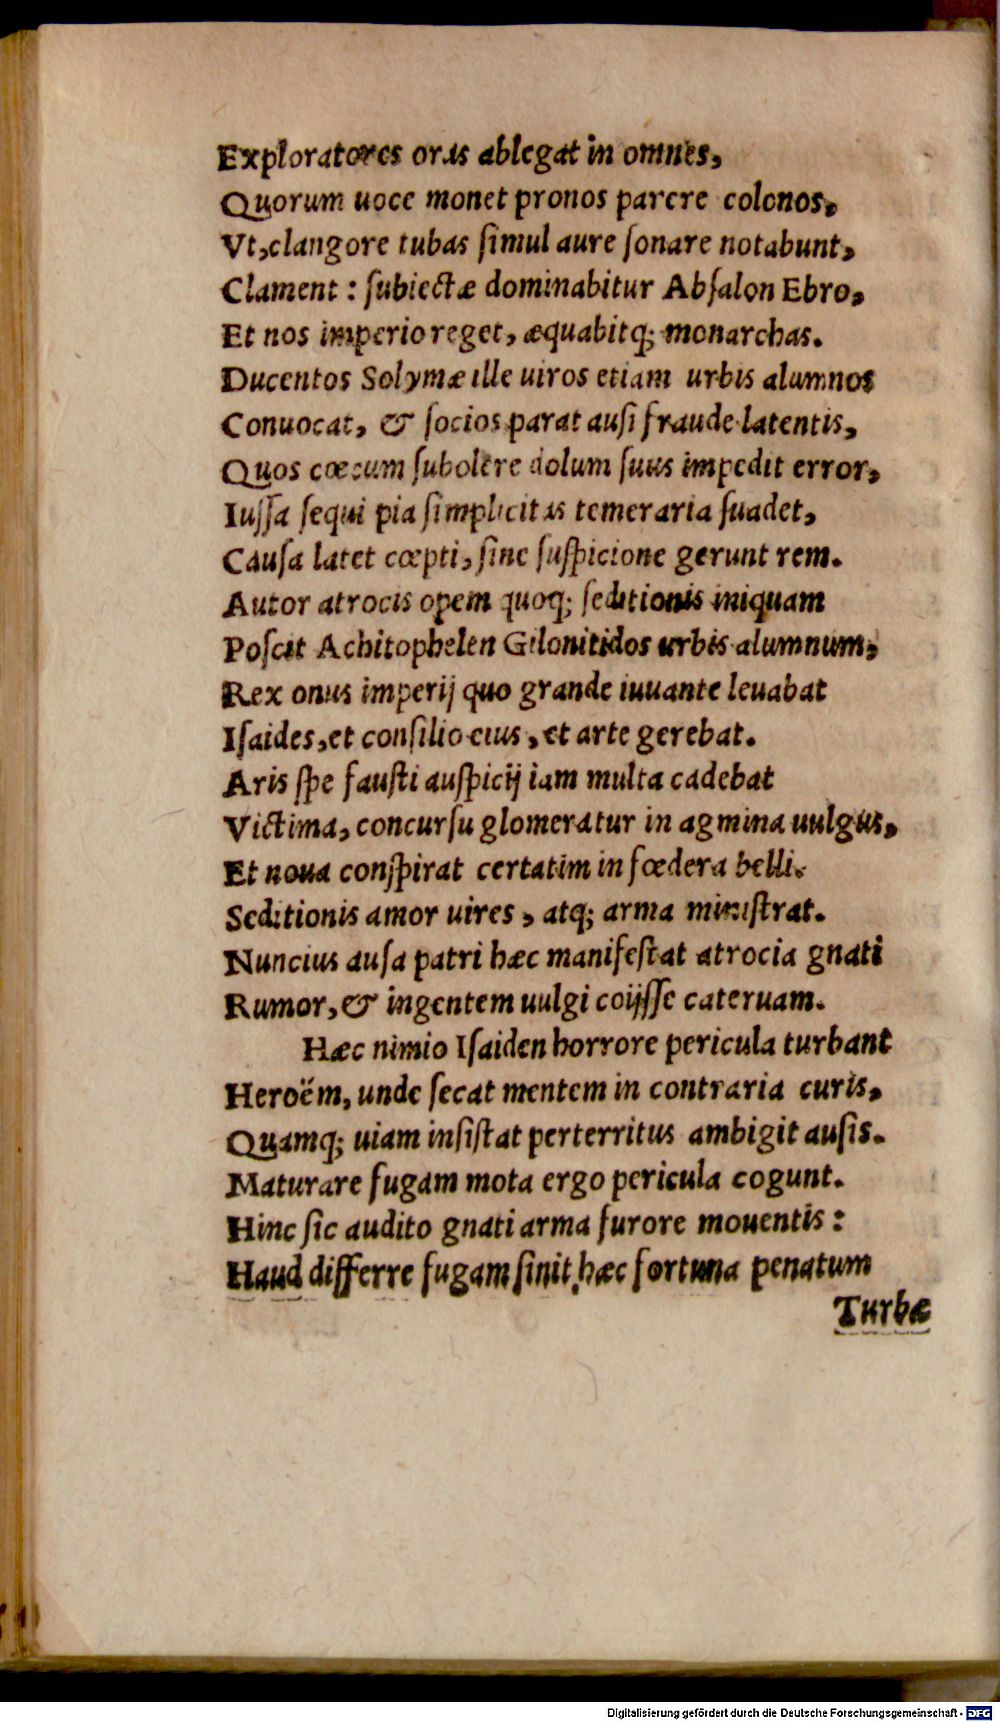 Exploratores oras ablegat in omnes,
Quorum uoce monet pronos parere colonos,
Vt, clangore tubas simul aure sonare notabunt,
Clament : subiectæ dominabitur Absalon Ebro,
Et nos imperio reget, æquabitq; monarchas.
Ducentos Solymæ ille uiros etiam urbis alumnos
Conuocat, & socios parat ausi fraude latentis,
Quos cœcum subolere dolum suus impedit error,
Iussa sequi pia simplicitas temeraria suadet,
Causa latet cœpti, sine suspicione gerunt rem.
Autor atrocis opem quoq; seditionis iniquam
Poscit Achitophelen Gilonitidos urbis alumnum,
Rex onus imperij quo grande iuuante leuabat
Isaides, et consilio eius, et arte gerebat.
Aris spe fausti auspicij iam multa cadebat
Victima, concursu glomeratur in agmina uulgus,
Et noua conspirat certatim in fœdera belli.
Seditionis amor uires, atq; arma ministrat.
Nuncius ausa patri hæc manifestat atrocia gnati
Rumor, & ingentem uulgi coijsse cateruam.
Hæc nimio Isaiden horrore pericula turbant
Heroëm, unde secat mentem in contraria curis,
Quamq; uiam insistat perterritus ambigit ausis.
Maturare fugam mota ergo pericula cogunt.
Hinc sic audito gnati arma furore mouentis :
Haud differre fugam sinit hæc fortuna penatum
Turbæ
Digitalisierung gefördert durch die Deutsche Forschungsgemeinschaft - DFG